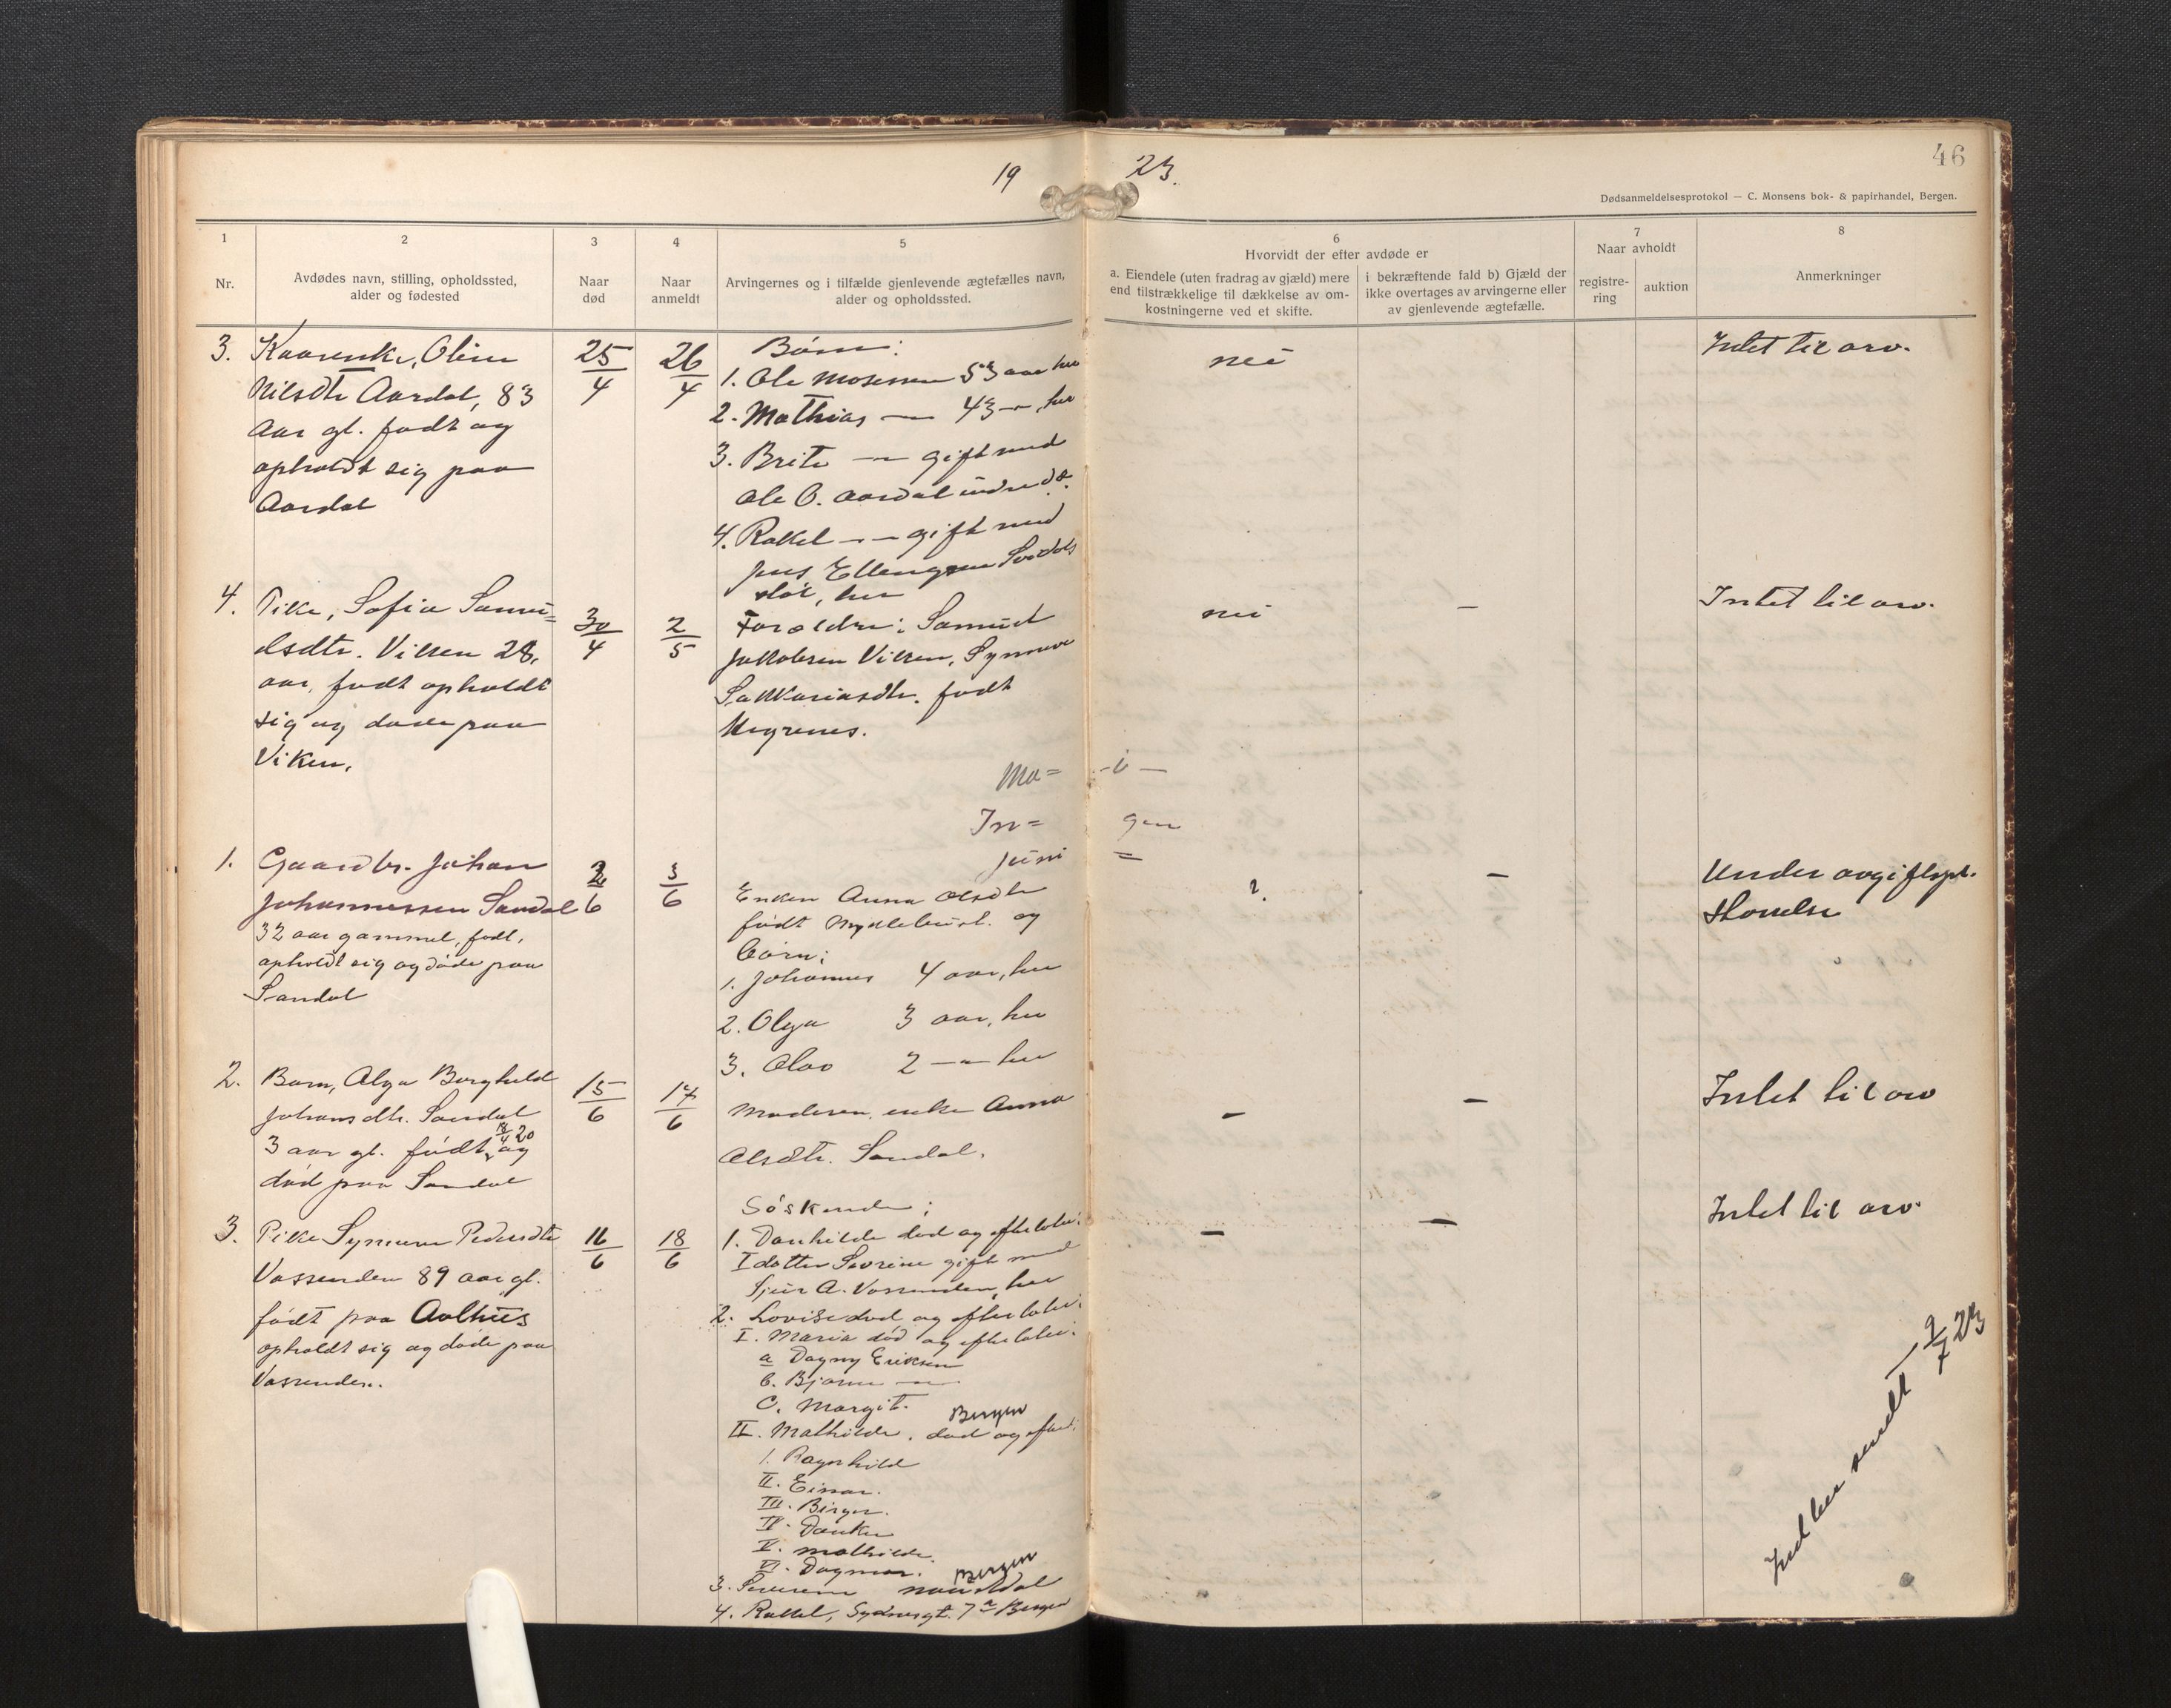 19 23.
46
Dødsanmeldelsesprotokol — C. Monsens bok- & papirhandel, Bergen.
1
Nr.
2
Avdødes navn, stilling, opholdssted,
alder og fødested
3
Naar
død
4
Naar
anmeldt
5
Arvingernes og i tilfælde gjenlevende ægtefælles navn,
alder og opholdssted.
6
Hvorvidt der efter avdøde er
a. Eiendele (uten fradrag av gjæld) mere
end tilstrækkelige til dækkelse av om-
kostningerne ved et skifte.
i bekræftende fald b) Gjæld der
ikke overtages av arvingerne eller
av gjenlevende ægtefælle.
7
Naar avholdt
registre-
ring
auktion
8
Anmerkninger
3.
Kaarenke, Oline
Nilsdtr Aardal, 83
aar gl. født og
opholdt sig paa
Aardal
25/4
26/4
Børn:
1. Ole Mosessen 53 aar her
2. Mathias — 43 — " her
3. Brite — " — gift med
Ole O. Aardal indre d.s.
4. Rakel — " — gift med
Jens Ellengsen
støl, her
nei
Intet til arv.
4.
Pike, Sofie Samu=
elsdtr. Viken 28,
aar, født opholdt
sig og døde paa
Viken.
30/4
2/5
Forældre: Samuel
Jakobsen Viken, Synneve
Sakkariasdtr. født
Hegrenes.
nei
—
Intet til arv.
Ma= -i-
In= gen
Juni =
1.
Gaardbr. Johan
Johannessen Sandal
32 aar gammel, født,
opholdt sig og døde paa
Sandal
2/6
3/6
Enken Anna Olsdtr
født Myklebust. og
børn:
1. Johannes 4 aar, her
2. Olga 3 aar, her
3. Olav 2 — " her
?
—
Under avgiftspt.
2.
Barn, Olga Borghild
Johansdtr. Sandal
3 aar gl. født 18/4 20 og
død paa Sandal
15/6
17/6
Moderen, enke Anna
Olsdtr. Sandal.
—
—
Intet til arv
3.
Pike Synneve Pedersdtr
Vassenden 89 aar gl.
født paa Aalhus
opholdt sig og døde paa
Vassenden.
16/6
18/6
Søskende:
1. Danhilde død og efterlatt:
I datter Severine gift med
Sjur A. Vassenden, her
2. Lovise død og efterlatt:
I. Maria død og efterlatt:
a Dagny Eriksen
b. Bjarne — " —
c. Margit.
Bergen
II. Mathilde, død og efterl:
I. Ragnhild
II. Einar.
III. Birger.
IV. Dankn
V. Mathilde.
VI. Dagmar. Bergen
3. Severine Naustdal
4. Rakkel, Sydnesgt. 7 a Bergen
—
—
Intet til arv.
Indber sendt 9/7 23